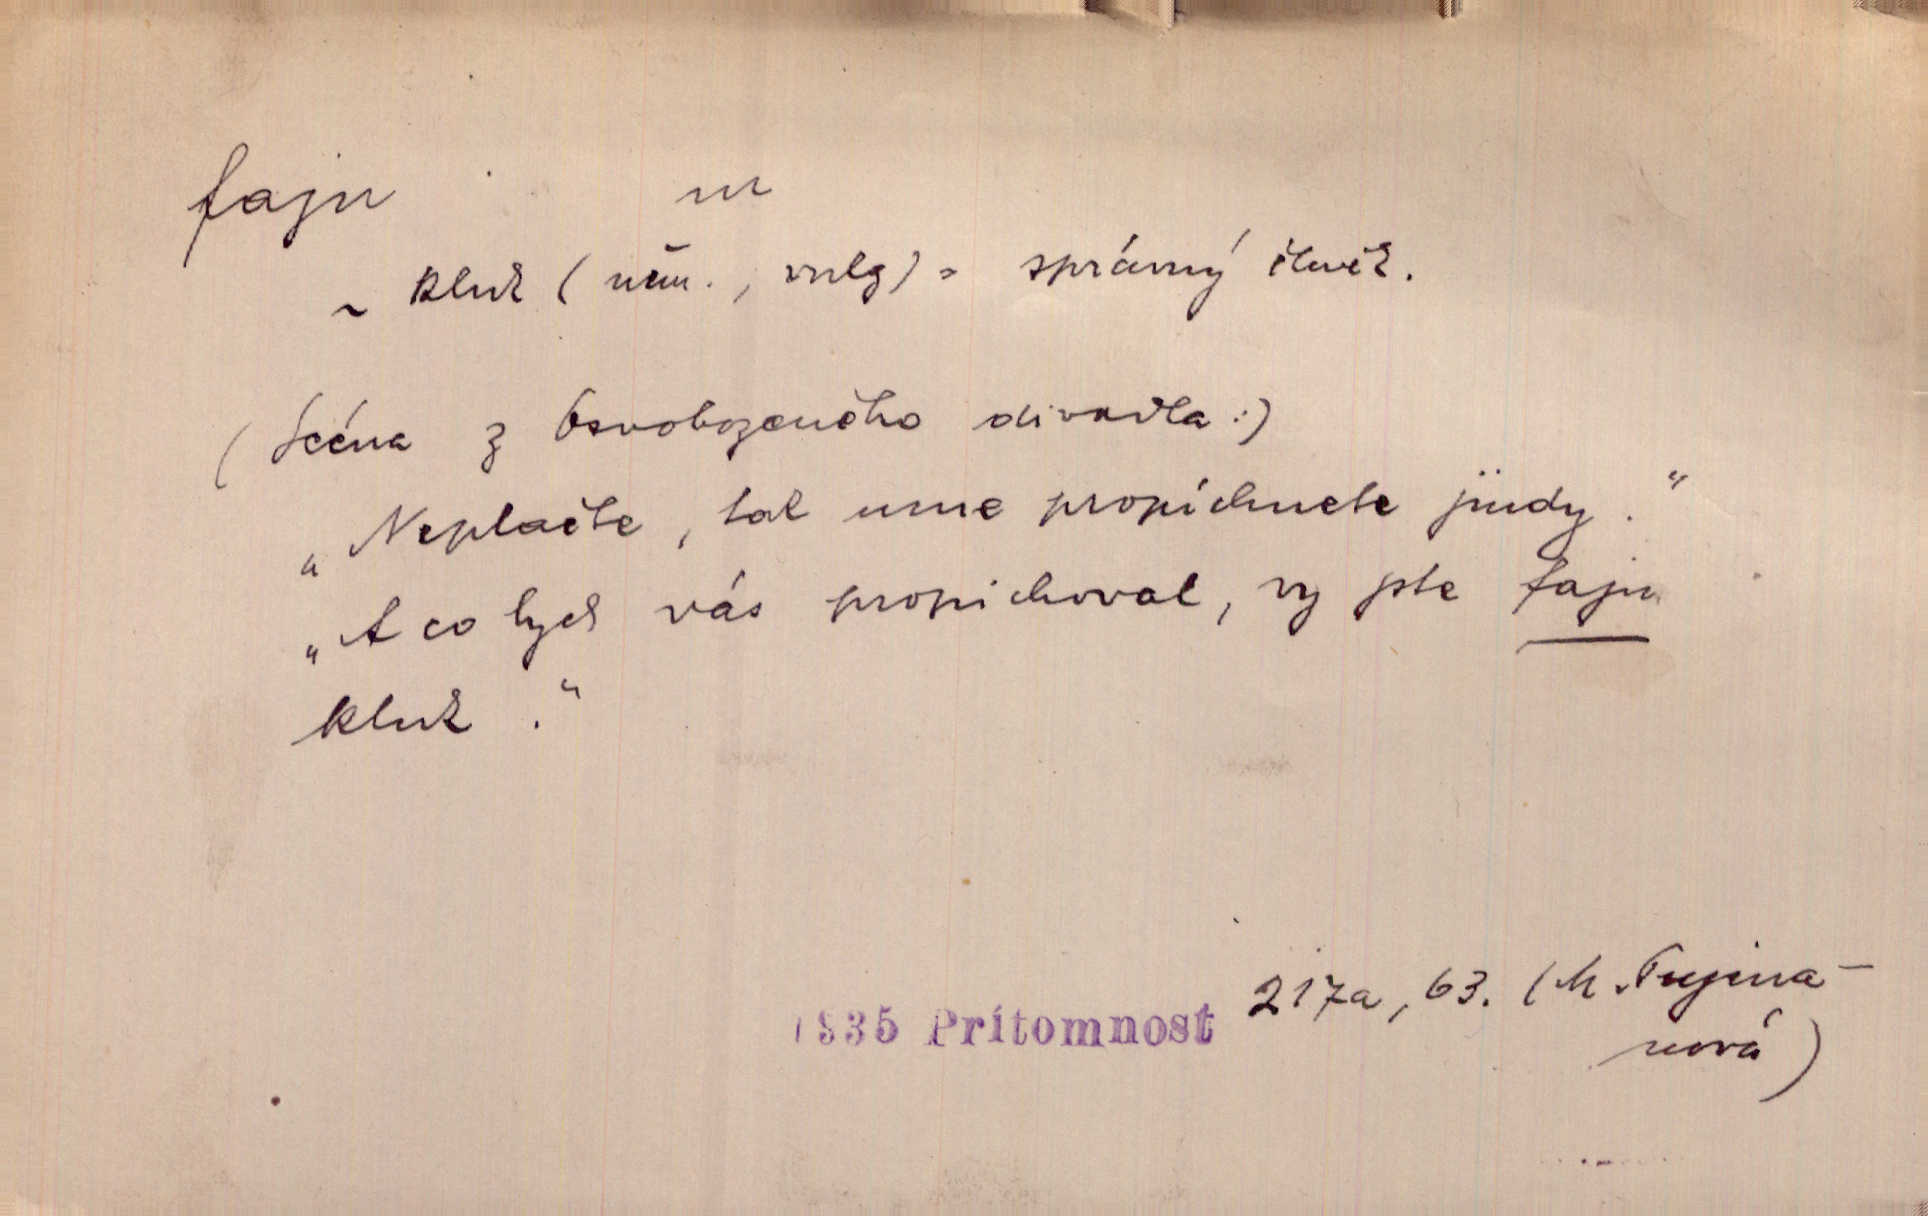 fajn m
~ kluk (něm., vulg) = správný člověk.
(Scéna z Osvobozeného divadla:)
„Neplačte, tak mne propíchnete jindy.“
„A co bych vás propichoval, vy jste fajn
kluk.“
1935 Prítomnost 217a, 63. (M.
nová)